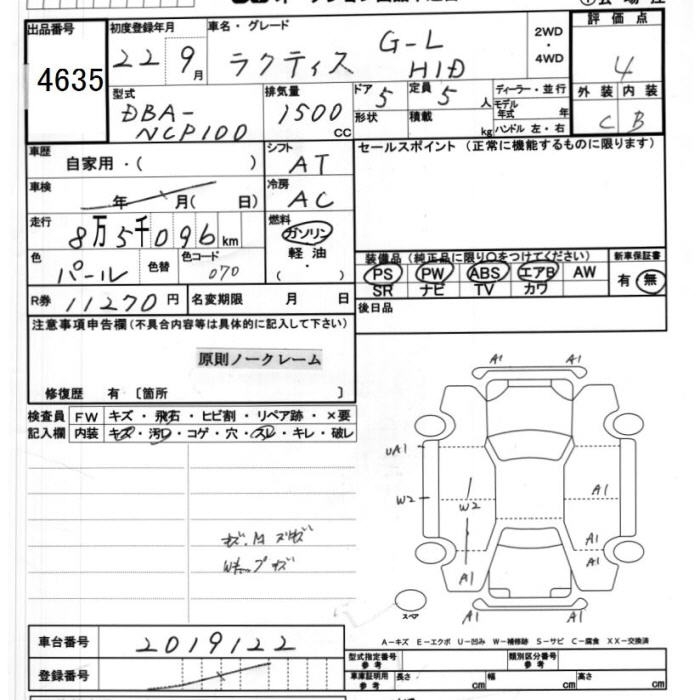 出品番号 初度登録年月 車名・グレード 2WD・4WD 評価点
4635 22 9月 ラクティス G-L HID 4
型式 排気量 ドア 5 定員 5人 ディーラー・並行 外装 内装
DBA-NCP100 1500cc 形状 積載 kg モデル年式 年 C B
ハンドル 左・右
車歴 自家用・( ) シフト AT セールスポイント (正常に機能するものに限ります)
車検 年 月( 日) 冷房 AC
走行 8万5千096km 燃料 ガソリン 軽油 ( )
色 パール 色替 色コード 070
装備品 (純正品に限り○をつけてください) 新車保証書
PS PW ABS エアB AW 有・無
SR ナビ TV カワ
R券 11270円 名変期限 月 日 後日品
注意事項申告欄 (不具合内容等は具体的に記入して下さい)
原則ノークレーム
修復歴 有 〔箇所 〕
検査員 FW キズ・飛石・ヒビ割・リペア跡・×要
記入欄 内装 キズ・汚レ・コゲ・穴・スレ・キレ・破レ
A1 A1
UA1
W2 W2 A1
A1
A1 A1
A1 A1
スペア
A-キズ E-エクボ U-凹み W-補修跡 S-サビ C-腐食 XX-交換済
車台番号 2019122
型式指定番号 参考 類別区分番号 参考
登録番号 車庫証明用 参考 長さ cm 幅 cm 高さ cm